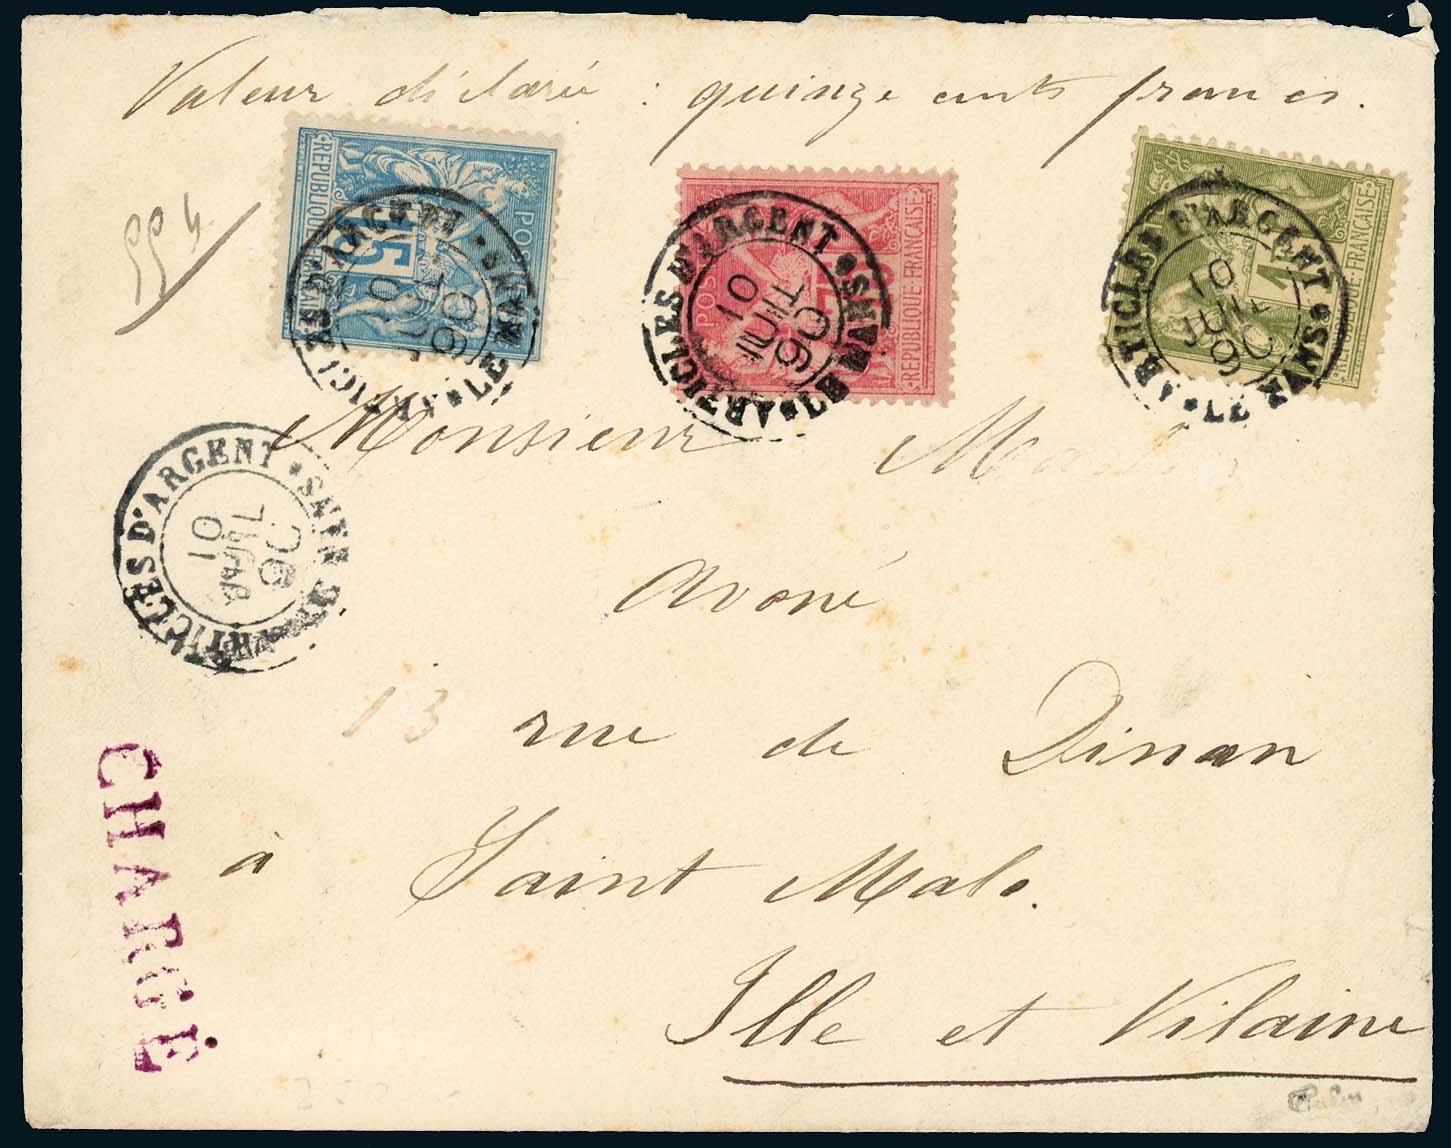 Valeur déclarée : quinze cents francs.
554.
POSTES
15
REPUBLIQUE FRANÇAISE
ARTICLES D'ARGENT * LE MANS *
10
JUIL
90
REPUBLIQUE FRANÇAISE
ARTICLES D'ARGENT * LE MANS *
10
JUIL
90
1F
REPUBLIQUE FRANÇAISE
ARTICLES D'ARGENT * LE MANS *
10
JUIL
90
ARTICLES D'ARGENT * LE MANS *
10
JUIL
90
Monsieur
Avoué
13 rue de Dinan
à Saint Malo.
Ille et Vilaine
CHARGÉ